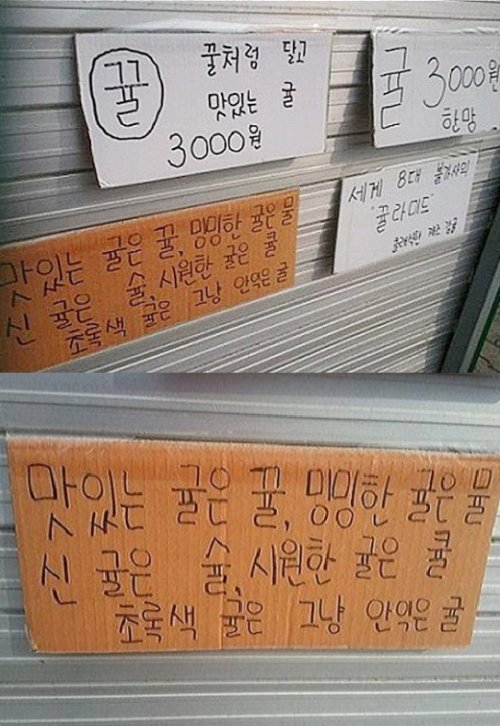 뀰
꿀처럼 달고
맛있는 귤
3000원
귤 3000원
한망
세계 8대 불가사의
"뀰라미드"
제주 감귤
맛있는 귤은 뀰, 밍밍한 귤은 뮬
신 귤은 슐, 시원한 귤은 큘
초록색 귤은 그냥 안익은 귤
맛있는 귤은 뀰, 밍밍한 귤은 뮬
신 귤은 슐, 시원한 귤은 큘
초록색 귤은 그냥 안익은 귤